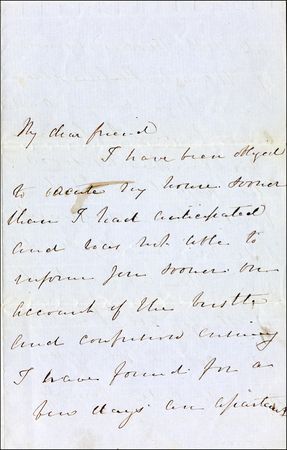 My dear friend
I have been obliged
to vacate my house sooner
than I had anticipated
and was not able to
inform you sooner on
account of the bustle
and confusion ensuing
I have found for a
few days an apartment